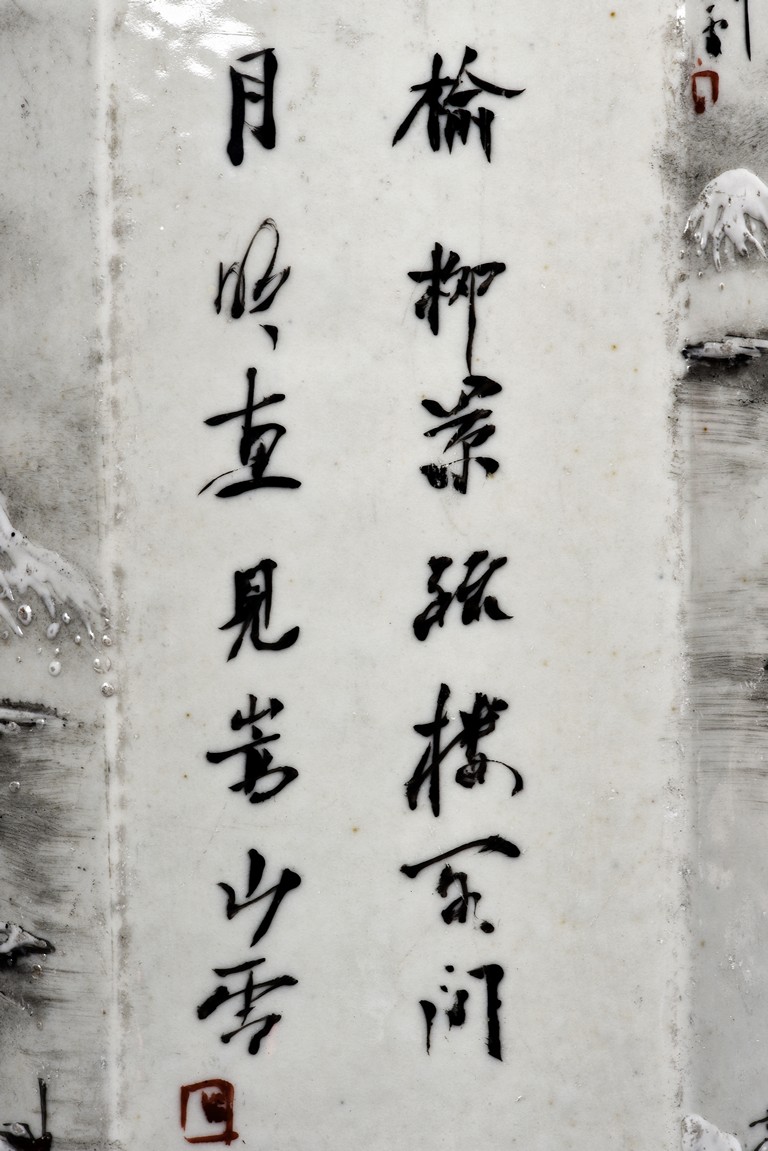 榆柳萧疏楼阁间
月明直见嵩山雪